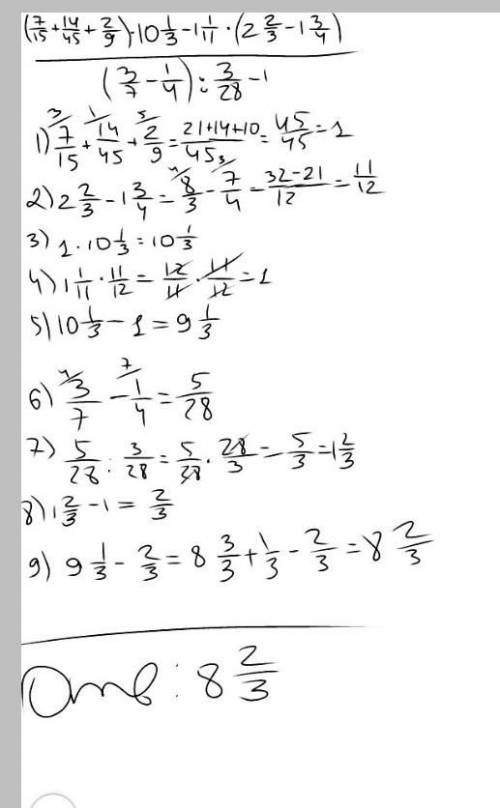 (7/15 + 14/45 + 2/9) · 10 1/3 - 1 1/11 · (2 2/3 - 1 3/4)
(3/7 - 1/4) : 3/28 - 1
1) 3/ 7/15 + 1/ 14/45 + 5/ 2/9 = 21+14+10/45 = 45/45 = 1
2) 2 2/3 - 1 3/4 = 4/ 8/3 - 3/ 7/4 = 32-21/12 = 11/12
3) 1 · 10 1/3 = 10 1/3
4) 1 1/11 · 11/12 = 12/11 · 11/12 = 1
5) 10 1/3 - 1 = 9 1/3
6) 4/ 3/7 - 7/ 1/4 = 5/28
7) 5/28 : 3/28 = 5/28 · 28/3 = 5/3 = 1 2/3
8) 1 2/3 - 1 = 2/3
9) 9 1/3 - 2/3 = 8 3/3 + 1/3 - 2/3 = 8 2/3
Отв: 8 2/3